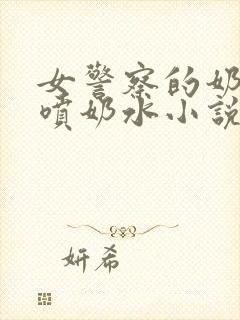 女警察的奶
噴奶水小説
妍希